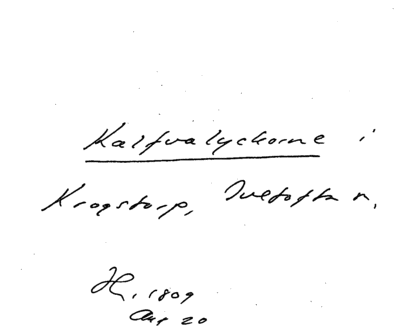 Kalfvalyckorne i
Krogstorp, Ivetofta n.
H, 1809
Aug 20